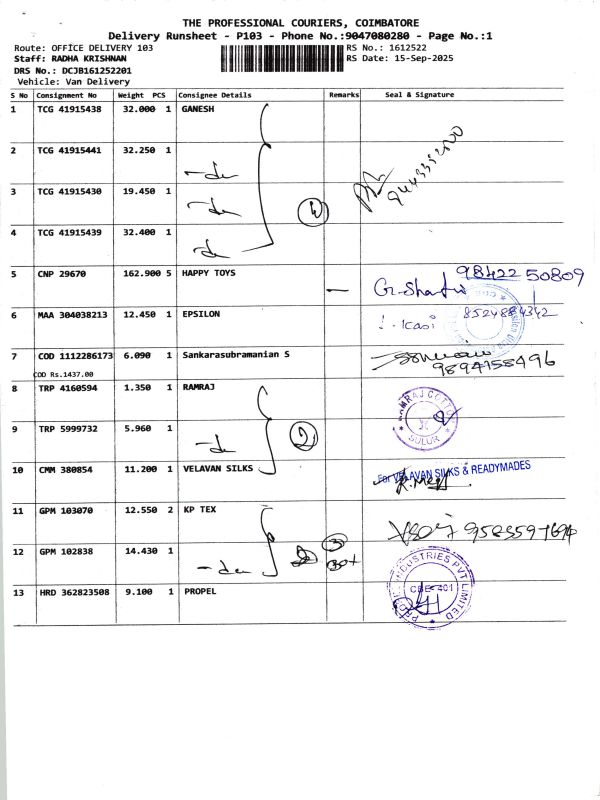 THE PROFESSIONAL COURIERS, COIMBATORE
Delivery Runsheet - P103 - Phone No.:9047080280 - Page No.:1
Route: OFFICE DELIVERY 103 RS No.: 1612522
Staff: RADHA KRISHNAN RS Date: 15-Sep-2025
DRS No.: DCJB161252201
Vehicle: Van Delivery
S No Consignment No Weight PCS Consignee Details Remarks Seal & Signature
1 TCG 41915438 32.000 1 GANESH
2 TCG 41915441 32.250 1
3 TCG 41915430 19.450 1
4 TCG 41915439 32.400 1
5 CNP 29670 162.900 5 HAPPY TOYS 98422 50809
6 MAA 304038213 12.450 1 EPSILON
7 COD 1112286173 6.090 1 Sankarasubramanian S
9894158496
COD Rs.1437.00
8 TRP 4160594 1.350 1 RAMRAJ
RAMRAJ COTTON SULUR
9 TRP 5999732 5.960 1
2
10 CMM 380854 11.200 1 VELAVAN SILKS For VELAVAN SILKS & READYMADES
11 GPM 103070 12.550 2 KP TEX
12 GPM 102838 14.430 1
3
INDUSTRIES PVT LIMITED
CBE-401
13 HRD 362823508 9.100 1 PROPEL